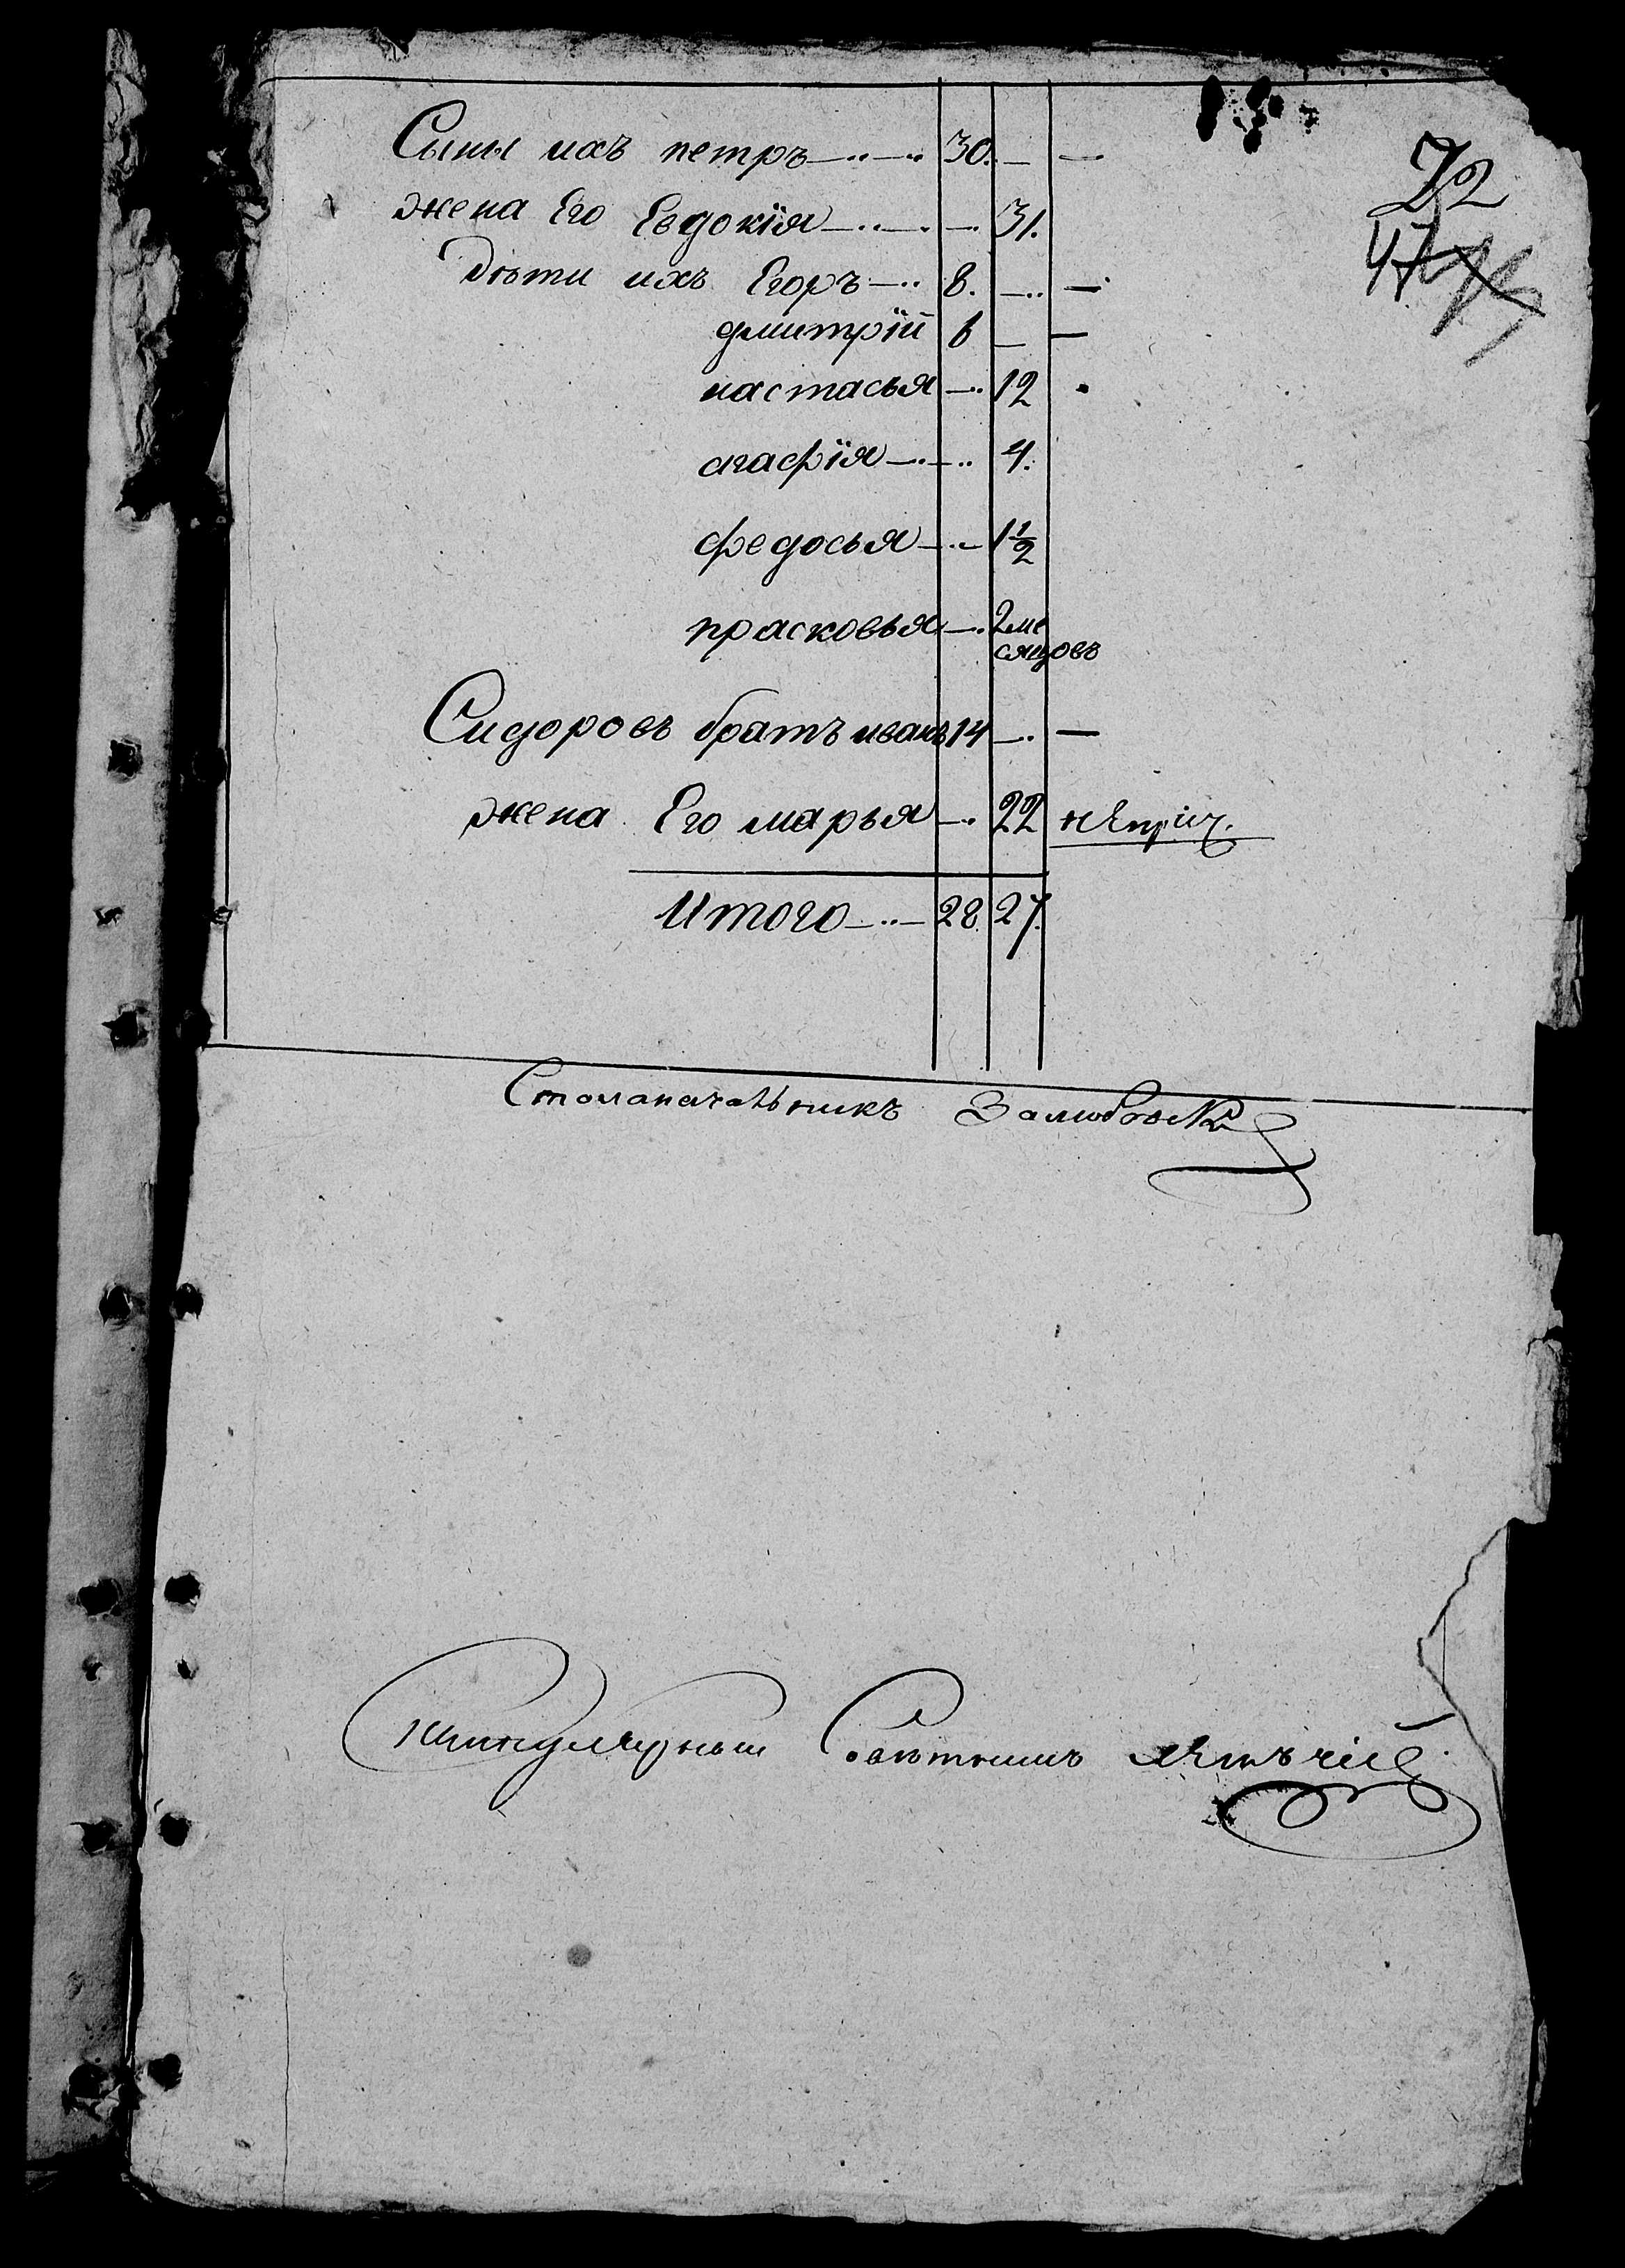 72
47
Сыны ихъ петръ 30. — —
жена Его Евдокія — 31.
Дѣти ихъ Егоръ 8. — —
дмитрій 6 — —
настасья — 12
агафія — 4.
федосья — 1 1/2
прасковья — 2 ме
сяцовъ
Сидоровъ братъ иванъ 14 — —
жена Его марья — 22
Итого 28. 27.
Столоначальникъ